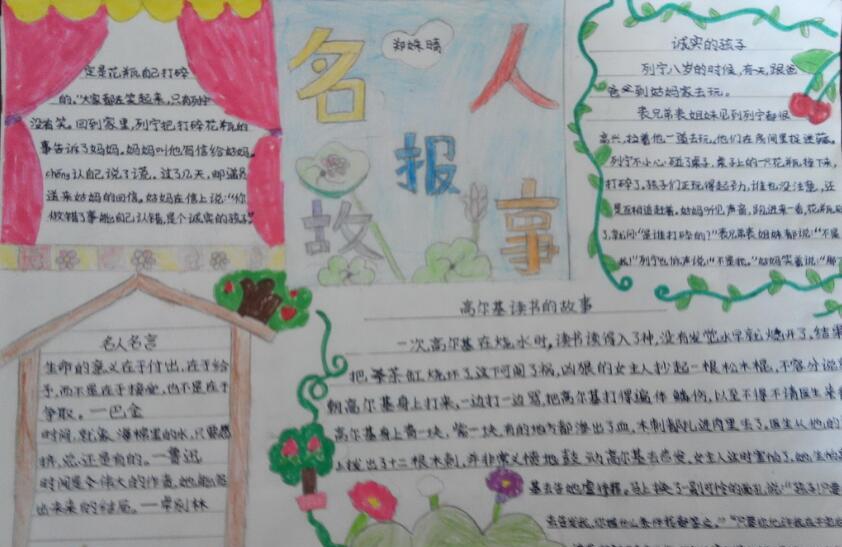 名人
故事
报
郑姝晴
诚实的孩子
列宁八岁的时候,有一天,跟爸
爸到姑妈家去玩。
表兄弟表姐妹见到列宁都很
高兴,拉着他一道去玩。他们在房间里捉迷藏。
列宁不小心碰了桌子,桌子上的一只花瓶掉下来,
打碎了。孩子们正玩得起劲,谁也没注意,还
是互相追赶着。姑妈听见声音,跑进来一看,花瓶
了,就问:“是谁打碎的?”表兄弟表姐妹都说:“不是
我!”列宁也低声说:“不是我。”姑妈笑着说:“那
定是花瓶自己打碎
的。”大家都在笑起来,只有列宁
没有笑。回到家里,列宁把打碎花瓶的
事告诉了妈妈。妈妈叫他写信给姑妈。
chéng认自己说了谎。过了几天,邮
送来姑妈的回信。姑妈在信上说:“你
做错了事能自己认错,是个诚实的孩子。”
名人名言
生命的意义在于付出,在于给
予,而不是在于接受,也不是在于
争取。—巴金
时间,就象海棉里的水,只要愿
挤,总还是有的。—鲁迅
时间是个伟大的作者,她能
出未来的结局。—卓别林
高尔基读书的故事
一次,高尔基在烧水时,读书读得入了神,没有发觉水早就烧开了,结果
把茶缸烧坏了。这下可闯了祸,凶狠的女主人抄起一根松木棍,不容分说
朝高尔基身上打来,一边打一边骂,把高尔基打得遍体鳞伤,以至不得不请医生来
高尔基身上青一块,紫一块,有的地方都渗出了血,木刺都扎进肉里去了。医生从他的
上拔出了十二根木刺,并非常义愤地鼓动高尔基去告发,女主人这时害怕了,她生怕高
基去告她虐待罪。马上换了一副可怜的面孔,说:“孩子,只要
去告发我,你提什么条件我都答应。”“只要你允许我在干完